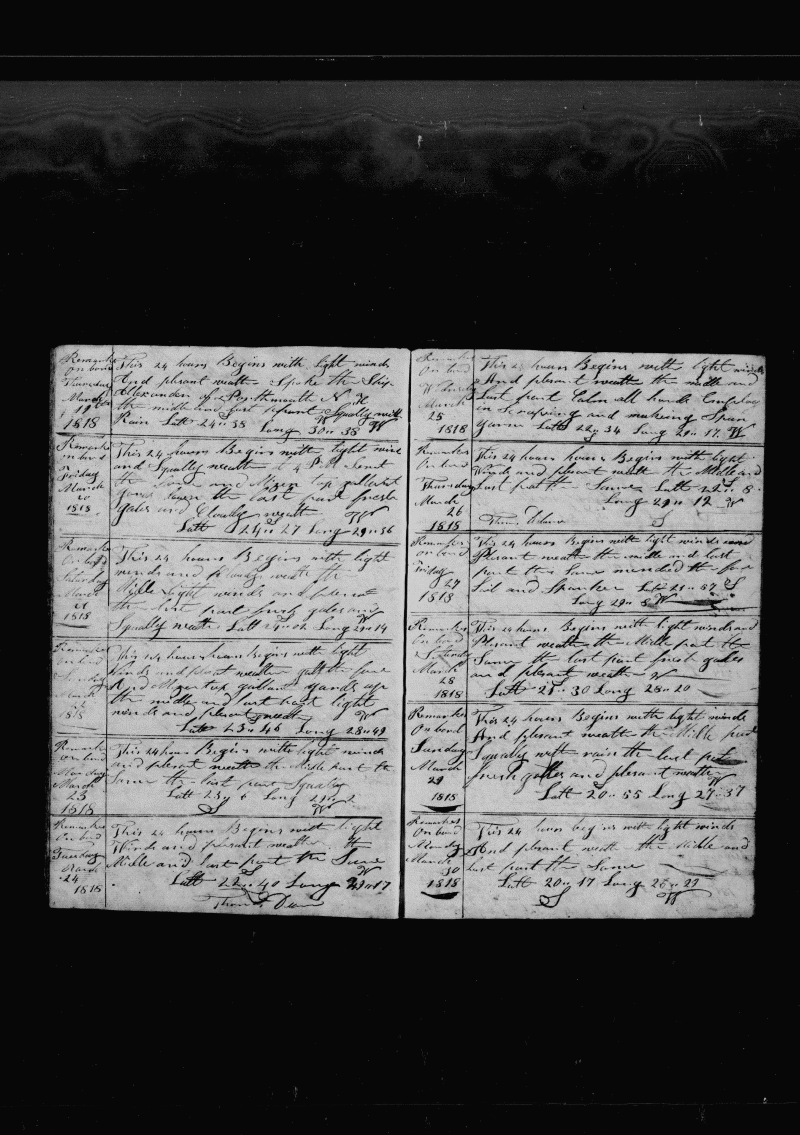 Remarks
on bord
Thursday
March
19
1818
This 24 hours Begins with light winds
And plesant weath Spoke the Ship
Alexander of Portsmouth N H
the midle and last part Squally with
Rain Latt 24 " 55 Long 32 " 38 W
Remarks
on bord
Friday
March
20
1818
This 24 hours Begins with light wind
and Squally weath at 4 P M Sent
the fore and Mizen top gallant
yards down the last part fresh
gales and Cloudy weath
Latt 24 " 27 Long 29 " 56 W
Remarks
On bord
Saturday
March
21
1818
This 24 hours Begins with light
winds and weath the
Midle light winds and
the last part fresh gales and
Squally weath Latt 24 " Long 29 " 14
Remarks
on bord
Sunday
March
1818
This 24 hours hours Begins with light
Winds and plesant weather the fore
And Mizen top gallant yards up
the midle and last part light
winds and plesant weath
Latt 23 " 46 Long 28 " 49 W
Remarks
on bord
Monday
March
23
1818
This 24 hours Begins with light winds
and plesant weath the Midle part the
Same the last part Squaly
Latt 23 " 6 Long 29 " 2 W
Remarks
On bord
Tuesday
March
24
1818
This 24 hours Begins with light
Winds and plesant weather the
Midle and last part the Same
Latt 22 " 40 Long 29 " 17 W
Remarks
On bord
March
25
1818
This 24 hours Begins with light winds
And plesant weath the midle and
Last part Calm all hands Employ
in Scraping and making Spun
yarn Latt 22 " 34 Long 29 " 17 W
Remarks
On bord
Thursday
March
26
1818
This 24 hours Begins with light
Winds and plesant weath the Midle and
Last part the Same Latt 22 " 8
Long 29 " 12 W
Remarks
On bord
Friday
27
1818
This 24 hours Begins with light winds and
Plesant weath the midle and last
part the Same mended the fore
Sail and Spanker Latt 21 " 57 S
Long 29 " 5 W
Remarks
On bord
Saturday
March
28
1818
This 24 hours Begins with light winds and
Plesant weath the Midle part the
Same the last part fresh gales
and plesant weath
Latt 21 " 30 Long 28 " 20 W
Remarks
On bord
Sunday
March
29
1818
This 24 hours Begins with light winds
And plesant weath the Midle part
Squally with rain the last part
fresh gales and plesant weath
Latt 20 " 55 Long 27 " 37 W
Remarks
On bord
Monday
March
30
1818
This 24 hours begins with light winds
And plesant weath the Midle and
last part the Same
Latt 20 " 17 Long 26 " 29 W